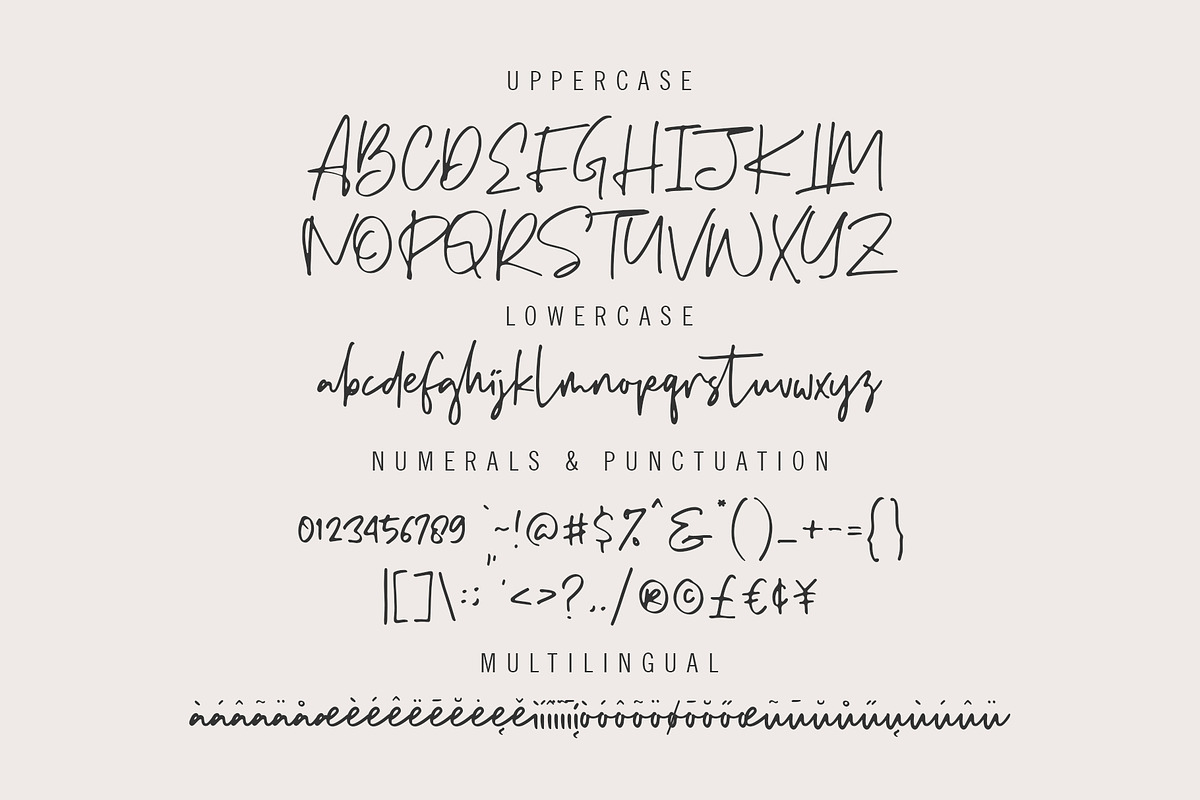 UPPERCASE
ABCDEFGHIJKLM
NOPQRSTUVWXYZ
LOWERCASE
abcdefghijklmnopqrstuvwxyz
NUMERALS & PUNCTUATION
0123456789 `~!@#$%^&*()_+-={}
|[]\:;"'<>?,./®©£€¢¥
MULTILINGUAL